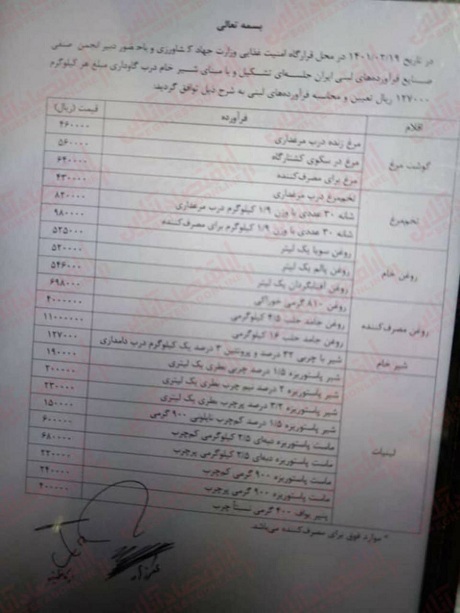 بسمه تعالی
در تاریخ ۱۴۰۱/۰۲/۱۹ در محل قرارگاه امنیت غذایی وزارت جهاد کشاورزی و باحضور دبیر انجمن صنفی
صنایع فرآورده‌های لبنی ایران جلسه‌ای تشکیل و با مبنای شیر خام درب گاوداری مبلغ هر کیلوگرم
۱۲۷۰۰۰ ریال تعیین و محاسبه فرآورده‌های لبنی به شرح ذیل توافق گردید:
اقلام فرآورده قیمت (ریال)
گوشت مرغ مرغ زنده درب مرغداری ۴۶۰۰۰۰
مرغ در سکوی کشتارگاه ۵۶۰۰۰۰
مرغ برای مصرف‌کننده ۶۴۰۰۰۰
تخم‌مرغ تخم‌مرغ درب مرغداری ۴۳۰۰۰۰
شانه ۳۰ عددی با وزن ۱/۹ کیلوگرم درب مرغداری
شانه ۳۰ عددی با وزن ۱/۹ کیلوگرم برای مصرف‌کننده ۹۸۰۰۰۰
روغن خام روغن سویا یک لیتر ۵۲۵۰۰۰
روغن پالم یک لیتر ۵۲۰۰۰۰
روغن آفتابگردان یک لیتر ۵۴۶۰۰۰
روغن مصرف‌کننده روغن ۸۱۰ گرمی خوراکی ۶۹۸۰۰۰
روغن جامد حلب ۴/۵ کیلوگرمی ۴۰۰۰۰۰۰
روغن جامد حلب ۱۶ کیلوگرمی ۱۱۰۰۰۰۰۰
شیر خام شیر با چربی ۳۲ درصد و پروتئین ۳ درصد یک کیلوگرم درب دامداری ۱۲۷۰۰۰
لبنیات شیر پاستوریزه ۱/۵ درصد چربی بطری یک لیتری ۱۹۰۰۰۰
شیر پاستوریزه ۲ درصد نیم چرب بطری یک لیتری ۲۰۰۰۰۰
شیر پاستوریزه ۳/۲ درصد پرچرب بطری یک لیتری ۲۳۰۰۰۰
شیر پاستوریزه ۱/۵ درصد کم‌چرب نایلونی ۹۰۰ گرمی ۱۵۰۰۰۰
ماست پاستوریزه دبه‌ای ۲/۵ کیلوگرمی کم‌چرب ۶۰۰۰۰۰
ماست پاستوریزه دبه‌ای ۲/۵ کیلوگرمی پرچرب ۶۸۰۰۰۰
ماست پاستوریزه ۹۰۰ گرمی کم‌چرب ۲۲۰۰۰۰
ماست پاستوریزه ۹۰۰ گرمی پرچرب ۲۴۰۰۰۰
پنیر یواف ۴۰۰ گرمی نسبتاً چرب
* موارد فوق برای مصرف‌کننده می‌باشد.